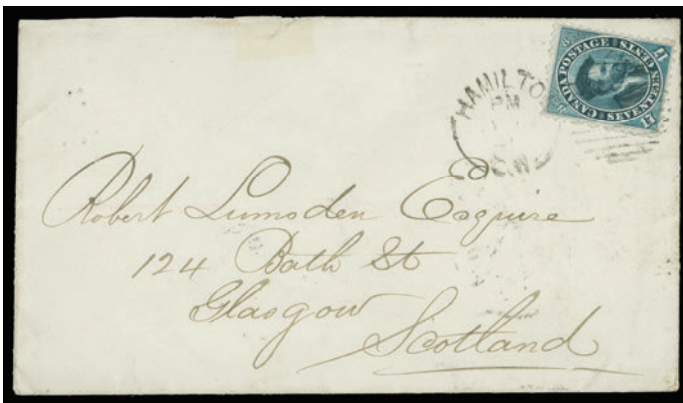 17 CANADA POSTAGE 17
SEVENTEEN CENTS
HAMILTON
PM
C.W
Robert Lumsden Esquire
124 Bath St
Glasgow
Scotland